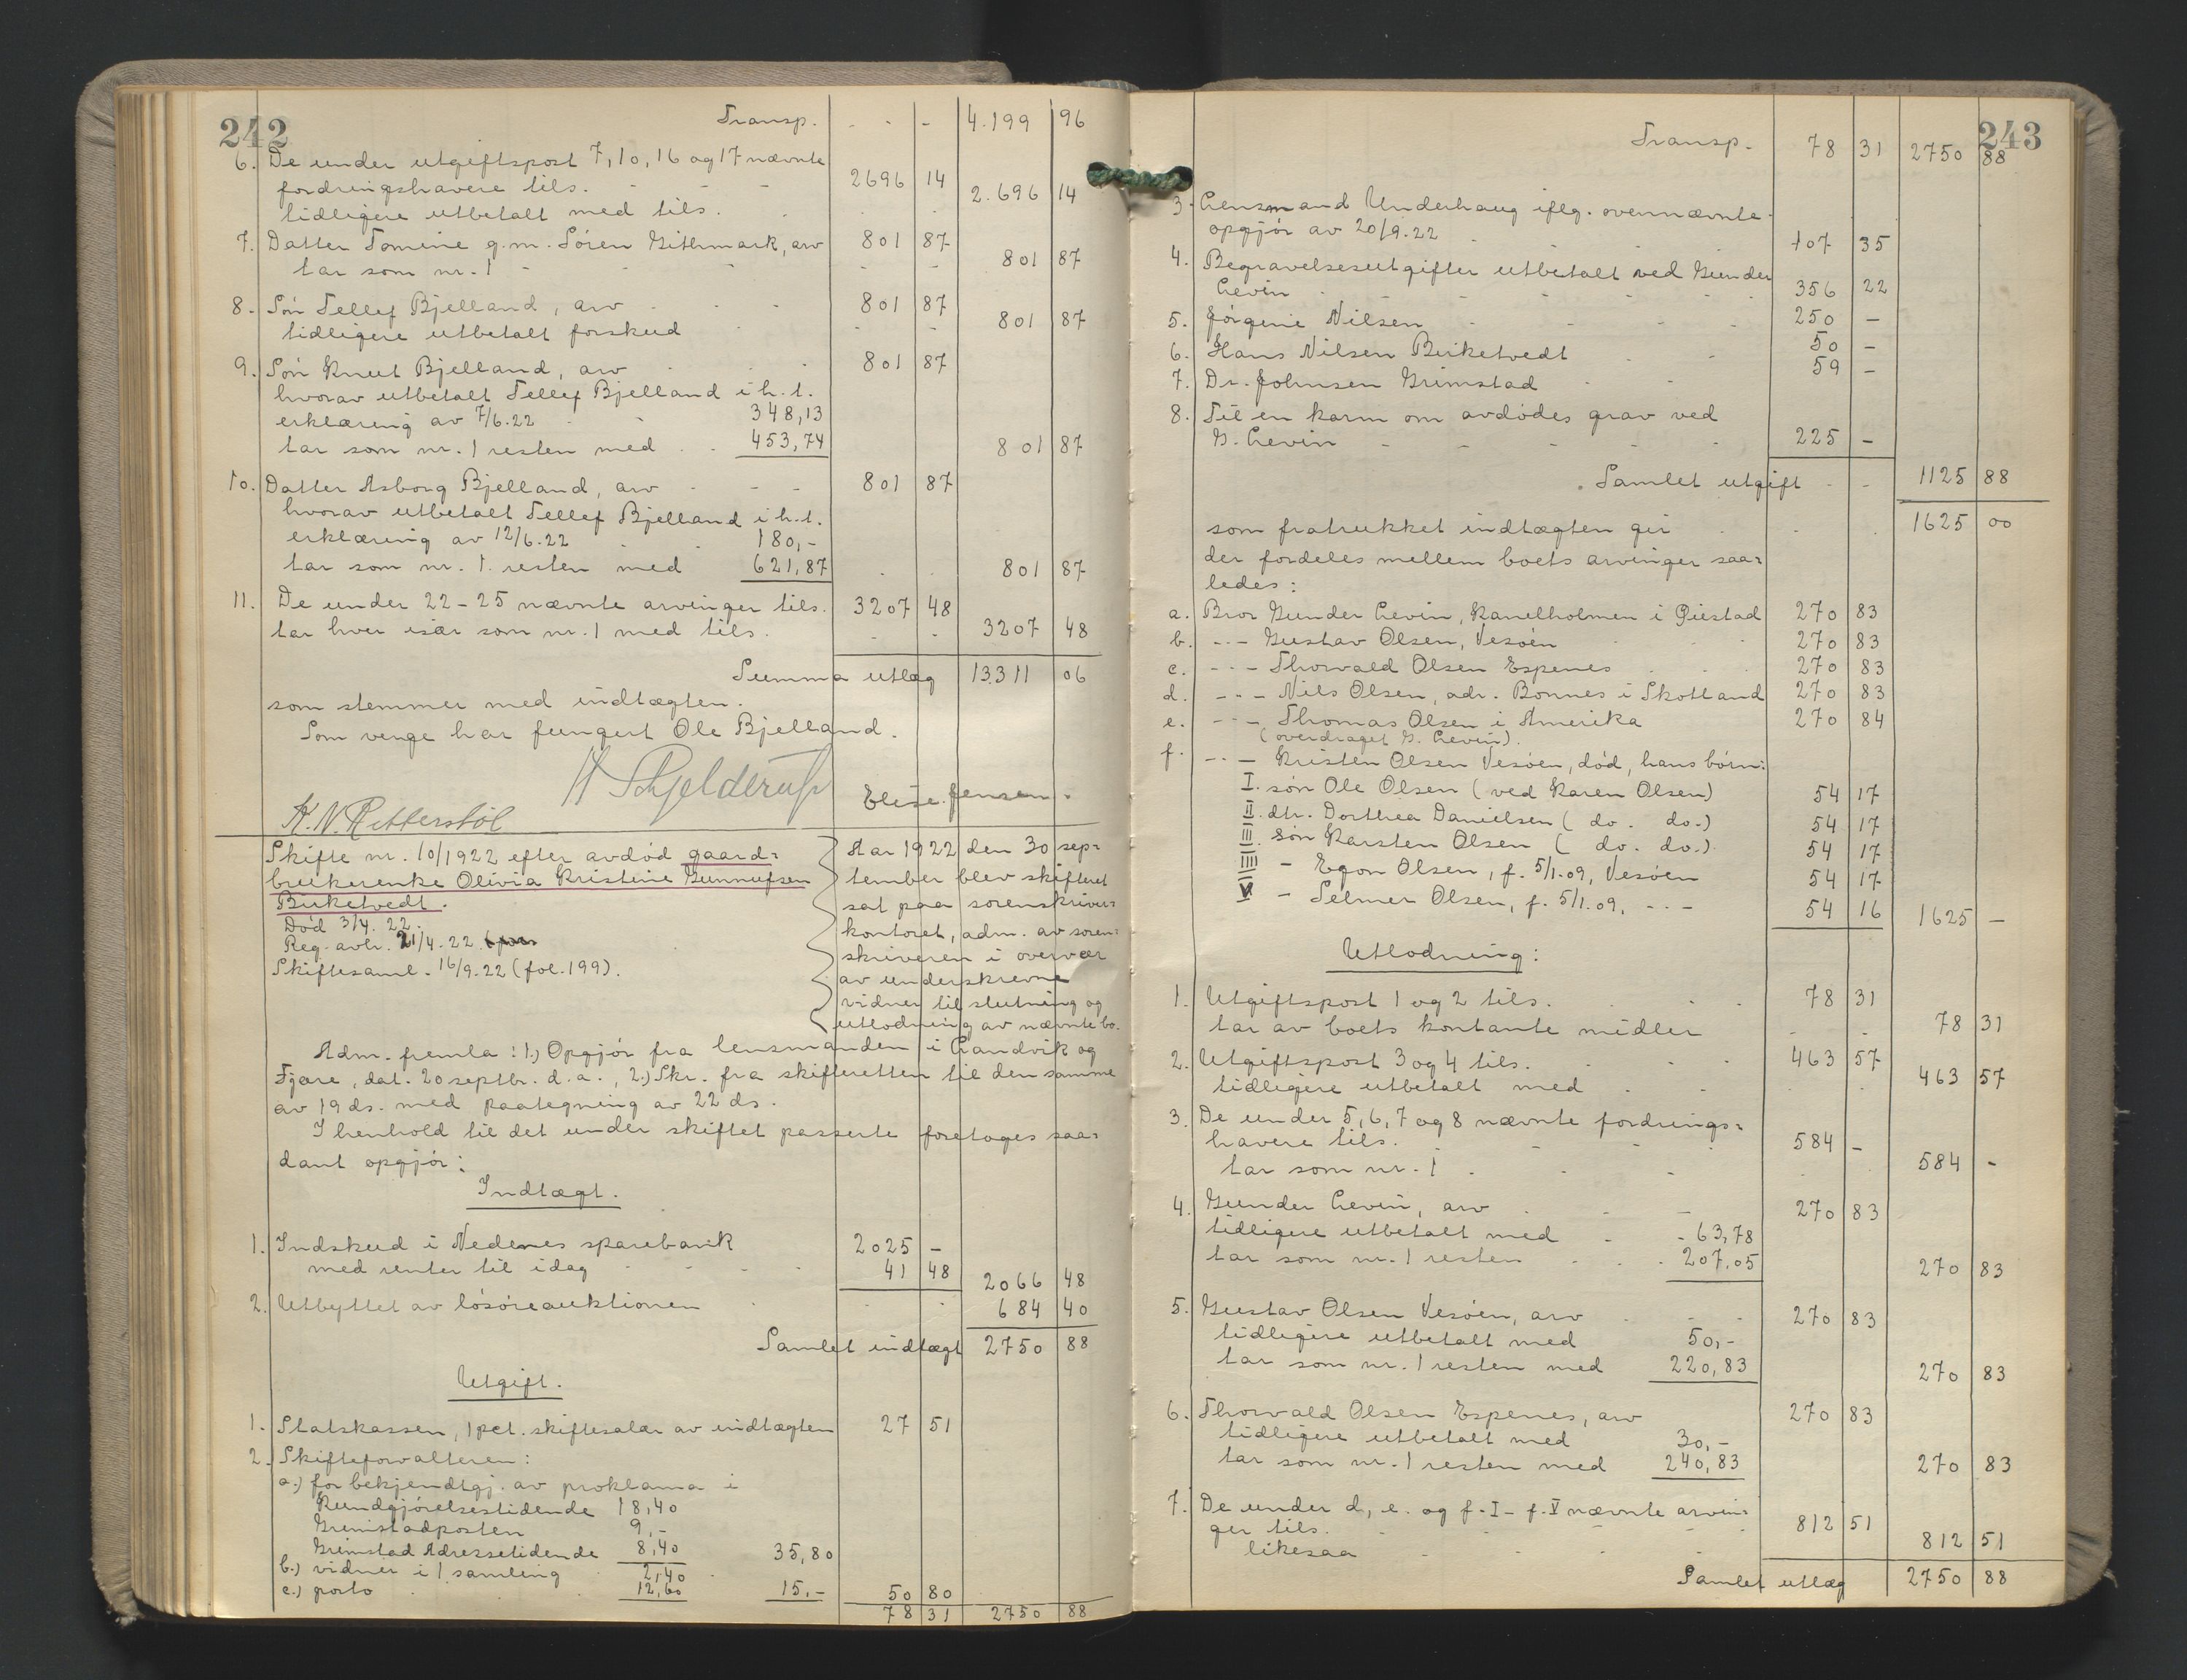 242
Transp. - - - 4.199 96
6. De under utgiftspost 7, 10, 16 og 17 nævnte
fordringshavere tils. - - - 2696 14
tidligere utbetalt med tils. 2.696 14
7. Datter Tomine g.m. Sören Githmark, arv 801 87
tar som nr. 1 - - - 801 87
8. Sön Tellef Bjelland, arv 801 87
tidligere utbetalt forskud 801 87
9. Sön Knut Bjelland, arv 801 87
hvorav utbetalt Tellef Bjelland i h. t.
erklæring av 7/6.22 348,13
tar som nr. 1 resten med 453,74 801 87
10. Datter Asborg Bjelland, arv - - - 801 87
hvorav utbetalt Tellef Bjelland i h. t.
erklæring av 12/6.22 180,-
tar som nr. 1. resten med 621,87 801 87
11. De under 22-25 nævnte arvinger tils. 3207 48
tar hver især som nr. 1 med tils. 3207 48
Summa utlæg 13311 06
som stemmer med indtægten.
Som verge har fungert Ole Bjelland.
H Schjelderup
Elise Jensen.
K. N. Retterstöl
Skifte nr. 10/1922 efter avdöd gaard-
brukerenke Olivia Kristine Gunnufsen
Birketvedt.
Död 3/4. 22.
Reg. avh. 21/4. 22.
Skiftesaml. 16/9. 22 (fol. 199).
Aar 1922 den 30 sep-
tember blev skifteret
sat paa sorenskriver-
kontoret, adm. av soren-
skriveren i overvær
av underskrevne
vidner til slutning og
utlodning av nævnte bo.
Adm. fremla: 1.) Opgjör fra lensmanden i Landvik og
Fjære, dat. 20 septbr. d. a., 2.) Skr. fra skifteretten til den samme
av 19 ds. med paategning av 22 ds.
I henhold til det under skiftet passerte foretoges saa-
dant opgjör:
Indtægt.
1. Indskud i Nedenes sparebank 2025 -
med renter til idag - - - 41 48 2066 48
2. Utbyttet av lösöreauktionen 684 40
Samlet indtægt 2750 88
Utgift.
1. Statskassen, 1 pct. skiftesalær av indtægten 27 51
2. Skifteforvalteren:
a.) for bekjendtgj. av proklama i
Kundgjörelsestidende 18,40
Grimstadposten 9,-
Grimstad Adressetidende 8,40 35,80
b.) vidner i 1 samling 2,40
c.) porto 12,60 15,- 50 80
78 31 2750 88
243
Transp. 78 31 2750 88
3. Lensmand Underhaug iflg. overnævnte
opgjör av 20/9.22 107 35
4. Begravelsesutgifter utbetalt ved Gunder
Levin - - - 356 22
5. Jörgine Nilsen - - - 250 -
6. Hans Nilsen Birketvedt 50 -
7. Dr. Johnsen Grimstad 59 -
8. Til en karm om avdödes grav ved
G. Levin - - - 225 -
Samlet utgift - - 1125 88
som fratrukket indtægten gir 1625 00
der fordeles mellem boets arvinger saa-
ledes:
a. Bror Gunder Levin, Kanelholmen i Öiestad 270 83
b. - - - Gustav Olsen, Vesöen 270 83
c. - - - Thorvald Olsen Espenes 270 83
d. - - - Nils Olsen, adr. Bonnes i Skotland 270 83
e. - - - Thomas Olsen i Amerika 270 84
(overdraget G. Levin).
f. - - - Kristen Olsen Vesöen, död, hans börn:
I. sön Ole Olsen (ved Karen Olsen) 54 17
II. dtr. Dorthea Danielsen ( do. do.) 54 17
III. sön Karsten Olsen ( do. do.) 54 17
IIII - Egon Olsen, f. 5/1.09, Vesöen 54 17
V - Selmer Olsen, f. 5/1.09, - - - 54 16 1625 -
Utlodning:
1. Utgiftspost 1 og 2 tils. 78 31
tar av boets kontante midler 78 31
2. Utgiftspost 3 og 4 tils. 463 57
tidligere utbetalt med 463 57
3. De under 5, 6, 7 og 8 nævnte fordrings-
havere tils. 584 -
tar som nr. 1 584 -
4. Gunder Levin, arv 270 83
tidligere utbetalt med - - 63,78
tar som nr. 1 resten 207,05 270 83
5. Gustav Olsen Vesöen, arv 270 83
tidligere utbetalt med 50,-
tar som nr. 1 resten med 220,83 270 83
6. Thorvald Olsen Espenes, arv 270 83
tidligere utbetalt med 30,-
tar som nr. 1 resten med 240,83 270 83
7. De under d, e. og f. I - f. V nævnte arvin-
ger tils. 812 51
likesaa 812 51
Samlet utlæg 2750 88